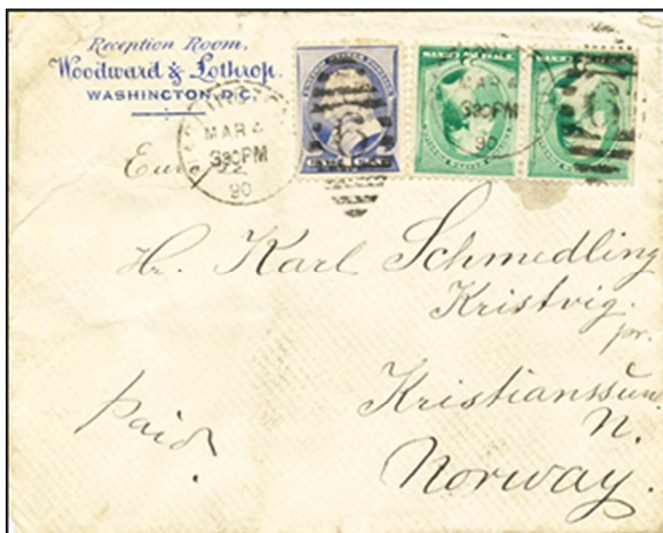 Reception Room,
Woodward & Lothrop.
WASHINGTON, D.C.
MAR 4
330PM
90
MAR 4
330PM
90
6
6
ONE CENT
Europe
Hr. Karl Schmedling
Kristvig.
pr.
Kristianssun
N.
Norway.
Paid.